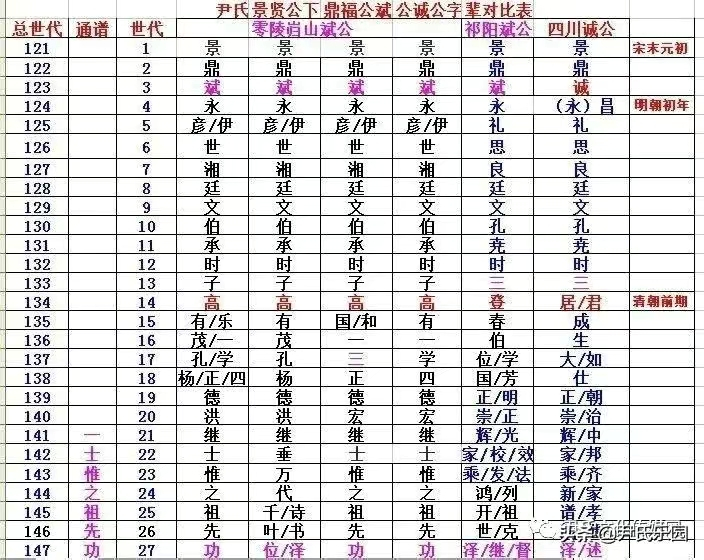 尹氏景贤公下 鼎福公斌 公诚公字辈对比表
总世代 通谱 世代 零陵岿山斌公 祁阳斌公 四川诚公
121 1 景 景 景 景 景 景 宋末元初
122 2 鼎 鼎 鼎 鼎 鼎 鼎
123 3 斌 斌 斌 斌 斌 诚
124 4 永 永 永 永 永 （永）昌 明朝初年
125 5 彦/伊 彦/伊 彦/伊 彦/伊 礼 礼
126 6 世 世 世 世 思 思
127 7 湘 湘 湘 湘 良 良
128 8 廷 廷 廷 廷 廷 廷
129 9 文 文 文 文 文 文
130 10 伯 伯 伯 伯 孔 孔
131 11 承 承 承 承 尧 尧
132 12 时 时 时 时 时 时
133 13 子 子 子 子 三 三
134 14 高 高 高 高 登 居/君 清朝前期
135 15 有/乐 有 国/和 有 春 成
136 16 茂/一 茂 一 一 伯 生
137 17 孔/学 孔 三 学 位/学 大/如
138 18 杨/正/四 杨 正 四 国/芳 仕
139 19 德 德 德 德 正/明 正/朝
140 20 洪 洪 宏 宏 崇/正 崇/治
141 一 21 继 继 继 继 辉/光 辉/中
142 士 22 士 垂 士 士 家/校/效 家/邦
143 惟 23 惟 万 惟 惟 乘/发/法 乘/齐
144 之 24 之 代 之 之 鸿/列 新/家
145 祖 25 祖 千/诗 祖 祖 开/祖 谱/孝
146 先 26 先 叶/书 先 先 世/克
147 功 27 功 位/泽 功 功 泽/继/督 泽/述
头条@尹氏乐园